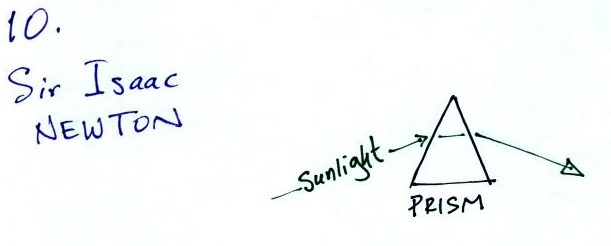 10.
Sir Isaac
NEWTON
Sunlight
PRISM